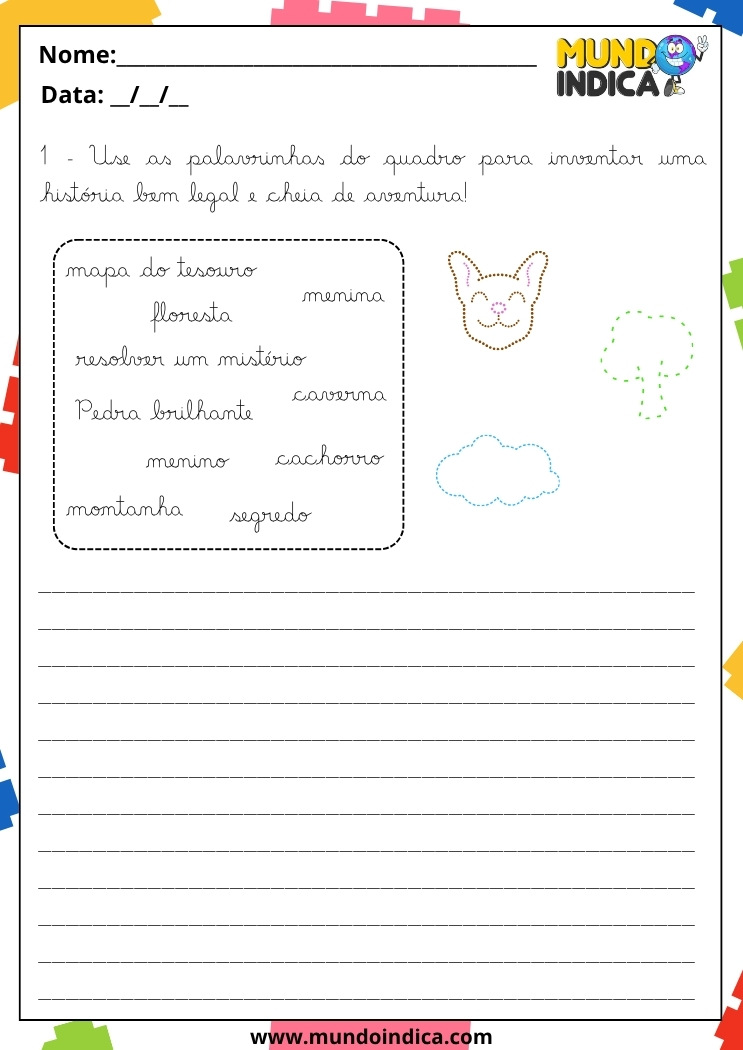 Nome:___________________________________
Data: __/__/__
MUNDO
INDICA
1 - Use as palavrinhas do quadro para inventar uma
história bem legal e cheia de aventura!
mapa do tesouro
menina
floresta
resolver um mistério
caverna
Pedra brilhante
menino
cachorro
montanha
segredo
www.mundoindica.com